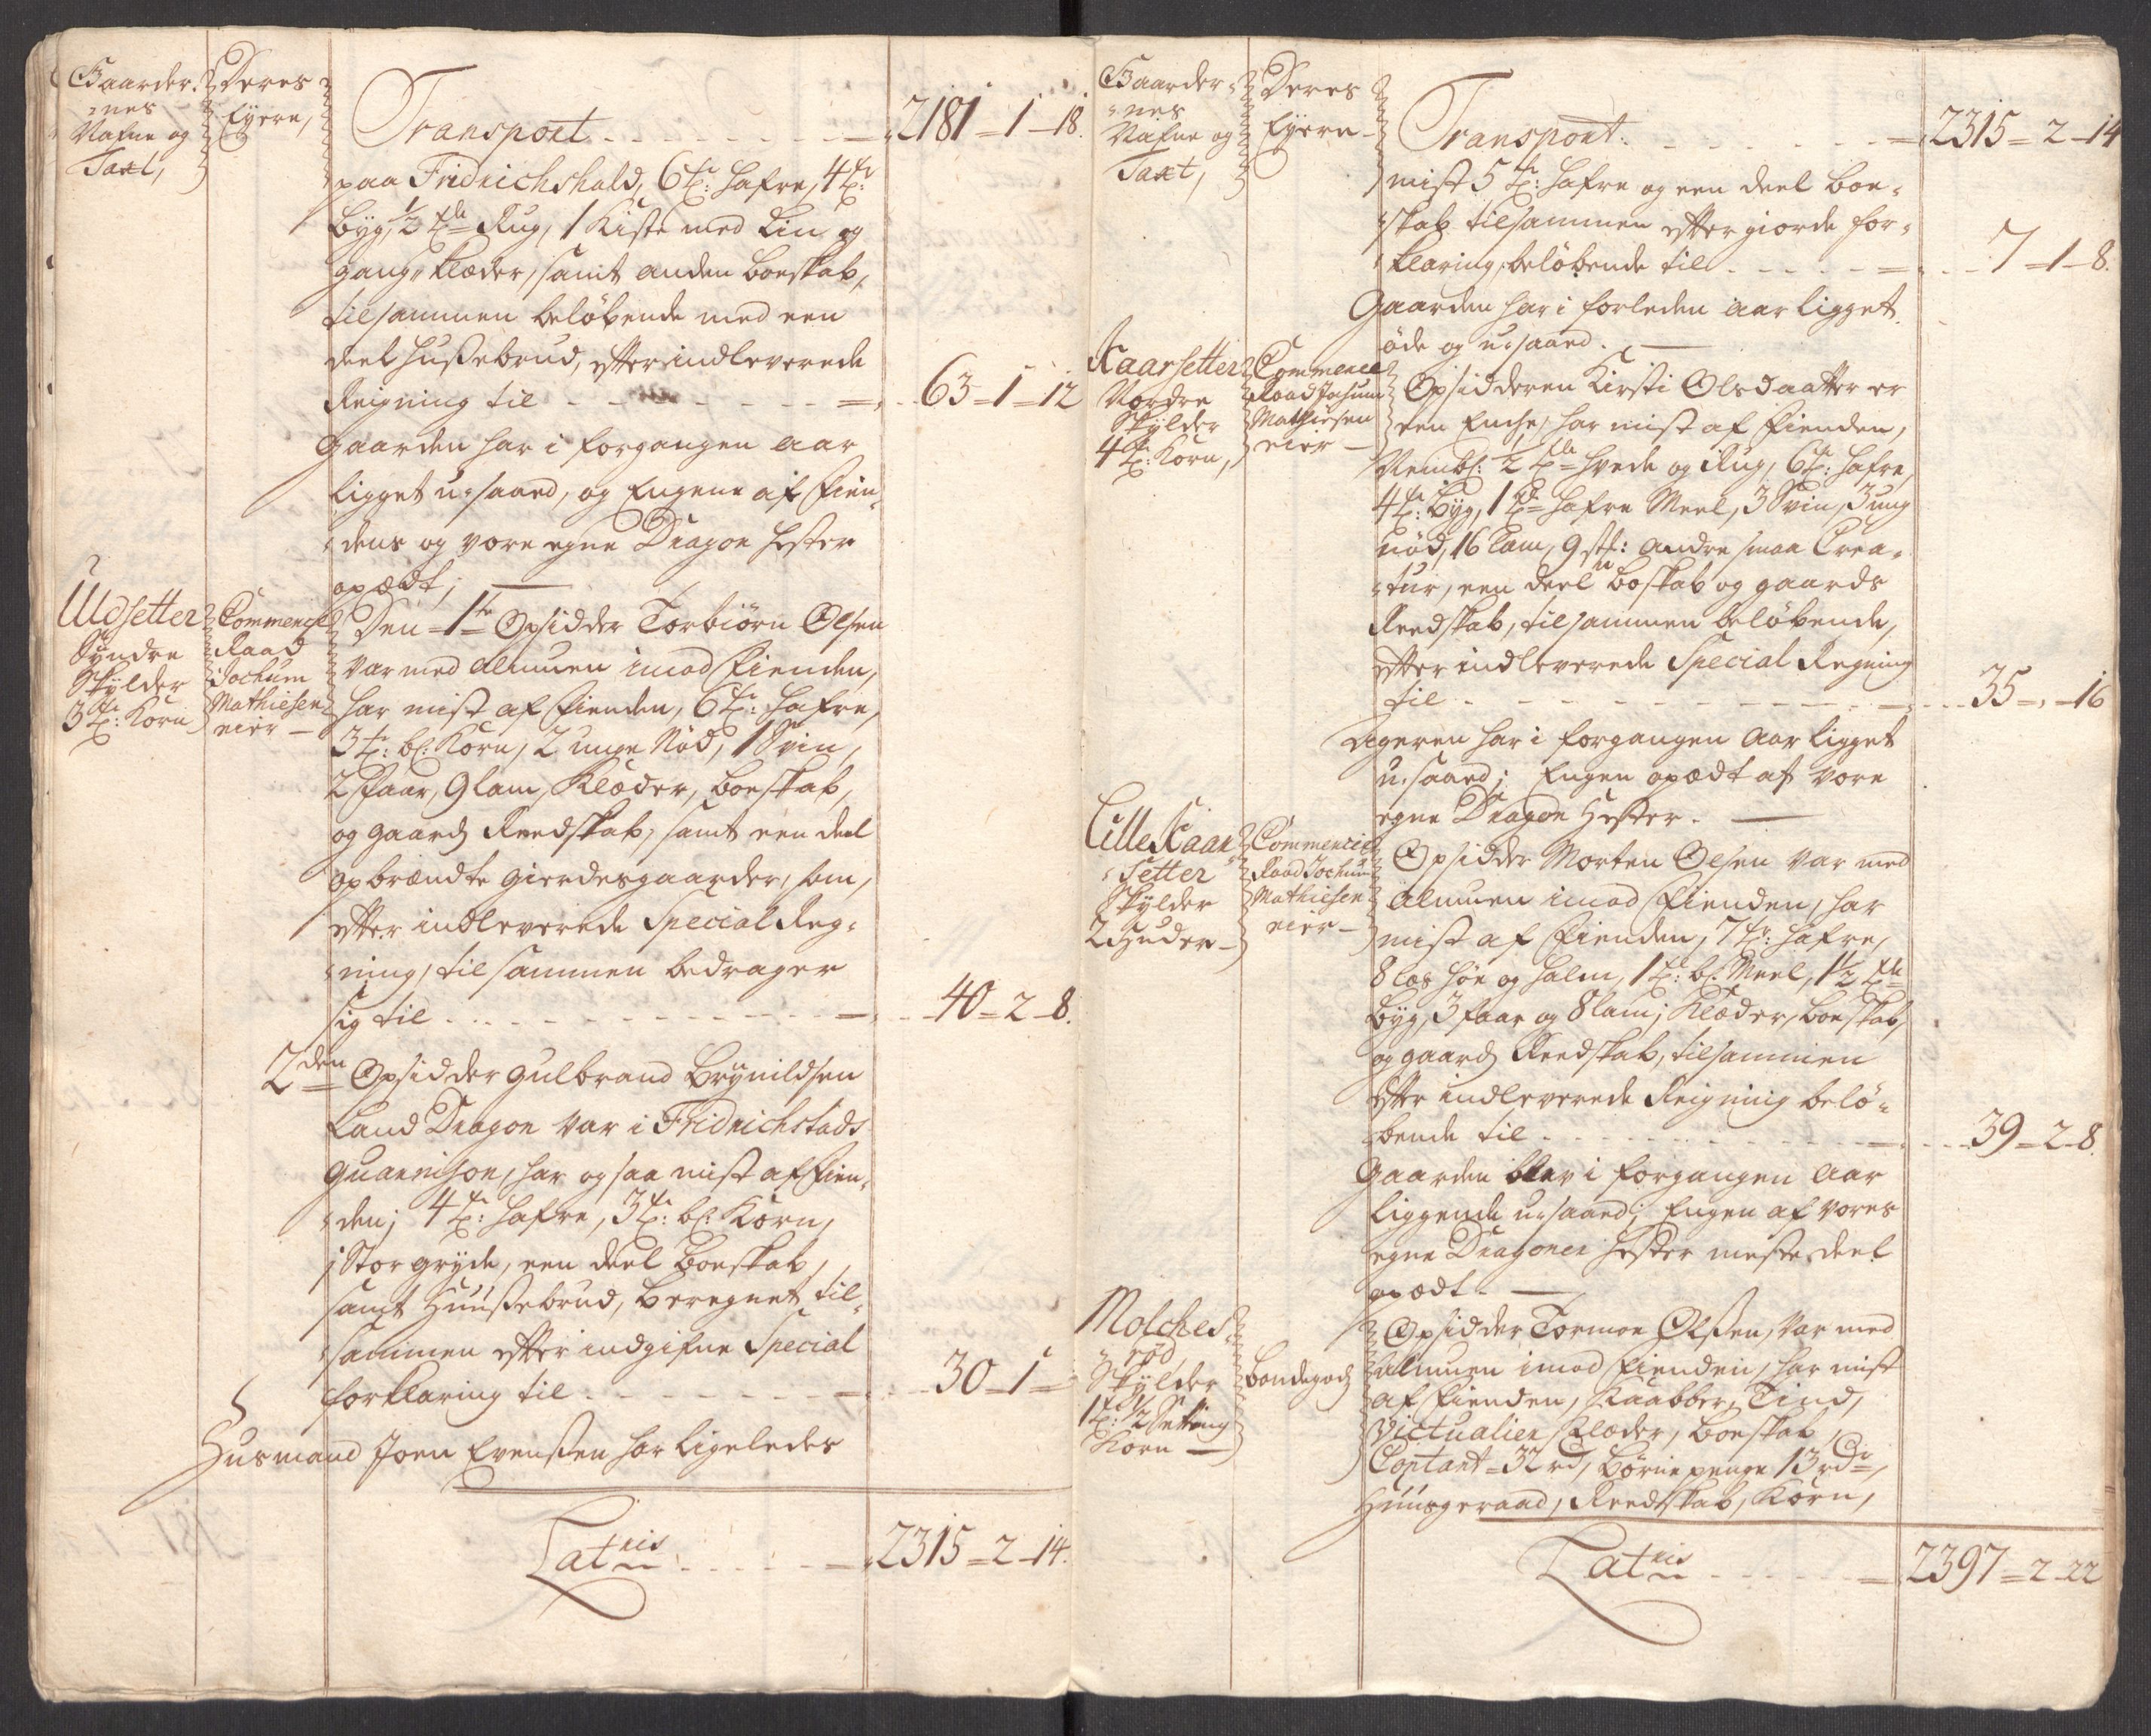 Gaarder-
nes
Nafne og
Taxt,
Deres
Eyere,
Transport - - - 2181 = 1 - 18.
paa Fridrichshald, 6 tr: hafre, 4 tr:
byg, 1/2 tde Rug, 1 Kiste med Lin og
gang-klæder, samt anden boeskab,
tilsammen beløbende med een
deel hussebrud, efter indleverede
Reigning til - - - 63 = 1 = 12
Gaarden har i forgangen aar
ligget u-saaed, og Engene af Fien-
dens og vore egne Dragon hester
opædt;
Udsetter
Søndre
Skylder
3 tr: Korn
Commerce
Raad
Jochum
Mathiesen
eier -
Den 1te Opsidder Torbiörn Olsen
var med almuen imod Fienden,
har mist af Fienden, 6 tr: hafre,
3 tr: bl: Korn, 2 unge Nød, 1 Svin,
2 Faar, 9 lam, Klæder, boeskab,
og gaards Reedskab, samt een deel
opbrændte gierdesgaarder, som,
efter indleverede Special Reg-
ning, tilsammen bedrager
sig til - - - 40 = 2 - 8.
2den Opsidder Gulbrand Brynildsen
Land Dragon var i Fridrichstads
Guarnison, har og saa mist af Fien-
den; 4 tr: hafre, 3 tr: bl: Korn,
1 Stor gryde, een deel boeskab,
samt Huussebrud, beregnet til-
sammen efter indgifne Special
forklaring til - - - 30 - 1 =
Husmand Joen Evensen har ligeledes
Lateris - - - 2315 = 2 - 14.
Gaarder-
nes
Nafne og
Taxt,
Deres
Eyere
Transport - - - 2315 = 2 - 14
mist 5 tr: hafre og een deel boe-
skab tilsammen efter giorde for-
klaring, beløbende til - - - 7 - 1 - 8.
Gaarden har i forleden aar ligget
øde og u-saaed.
Kaarsetter
Nordre
Skylder
4 tr: Korn,
Commerce
Raad Jochum
Mathiesen
eier -
Opsidderen Kirsti Olsdaatter er
een Enche, har mist af Fienden,
Neml: 1/2 tde hvede og Rug, 6 tr: hafre,
4 tr: byg, 1 tde hafre Meel, 3 Svin, 3 ung
nød, 16 Lam, 9 st: andre smaa Crea-
tur, een deel boskab og gaards
Reedskab, tilsammen beløbende,
efter indleverede Special Regning
til - - - 35 - , - 16
Ageren har i forgangen aar ligget
u-saaed; Engen opædt af vore
egne Dragon Hester.
Lille Kaar
setter
Skylder
2 Huder
Commerce
Raad Jochum
Mathiesen
eier -
Opsidder Morten Olsen var med
almuen imod Fienden, har
mist af Fienden, 7 tr: hafre,
8 læs høe og halm, 1 tr: bl: Meel, 1 1/2 tde
byg, 3 faar og 8 lam; Klæder, boeskab,
og gaards Reedskab, tilsammen
efter indleverede Reigning belø-
bende til - - - 39 - 2 - 8.
Gaarden blev i forgangen aar
liggende u-saaed; Engen af vores
egne Dragoner hester meste deel
opædt.
Molches
rød,
Skylder
1 tr: 1/2 Setting
Korn
bondegods
Opsidder Tormoe Olssen, var med
almuen imod Fienden, har mist
af Fienden, Kaabber, Tind,
Victualier, Klæder, boeskab,
Contant = 32 rd, børne penge 13 rdr,
Huusgeraad, Reedskab, Korn,
Lateris - - - 2397 = 2 - 22